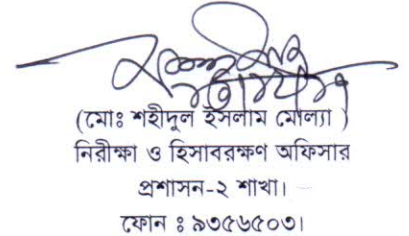 (মোঃ শহীদুল ইসলাম মোল্যা )
নিরীক্ষা ও হিসাবরক্ষণ অফিসার
প্রশাসন-২ শাখা।
ফোন ঃ ৯৩৫৬৫০৩।